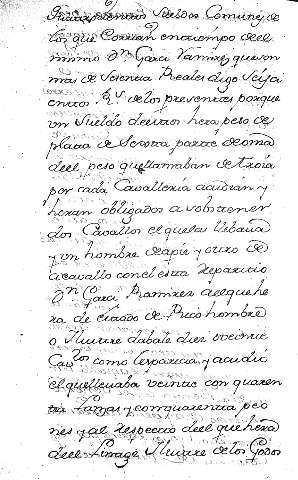 sueldos Comunes de
los que Corrian en tiempo de el
mismo Dn. Garci Ramirez que son
mas de setenta Reales digo
de los presentes porque
un sueldo de estos hera peso de
plata de parte de
de el peso que llamaban de
por cada Cavalleria acudian y
heran obligados a
dos Cavallos el que las llebaua
y un hombre de apie y otro de
a cavallo con el esta reparticio
Dn. Garci Ramirez a el que he
ra de estado de Rico hombre
o Ilustre dabale diez o veinte
Cau.os como les parecia y acudio
el que lleuaba veinte con quaren
ta Lanzas y con quarenta peo
nes y al respecto de el que hera
de el Linage Ilustre de los Godos